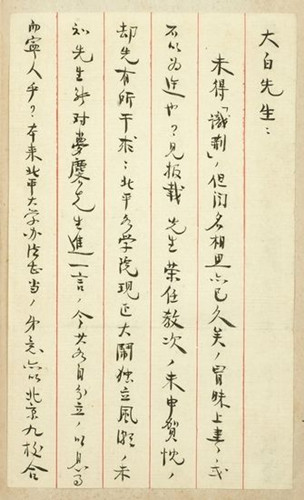 大白先生：
未得「識荊」，但闻名相思亦已久矣，冒昧上書，或
不以为迕也？見报载 先生荣任教次，未申賀忱，
却先有所干求：北平各学院现正大鬧独立風潮，未
知先生能对夢麐先生進一言，令其各自分立，以息事
而寧人乎？本来北平大学办法当，弟意亦以北京九校合